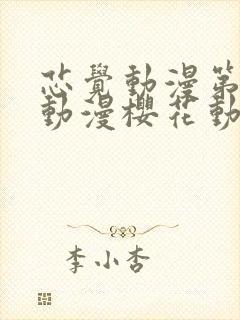 芯覺動漫第
動漫櫻花動
李小杏